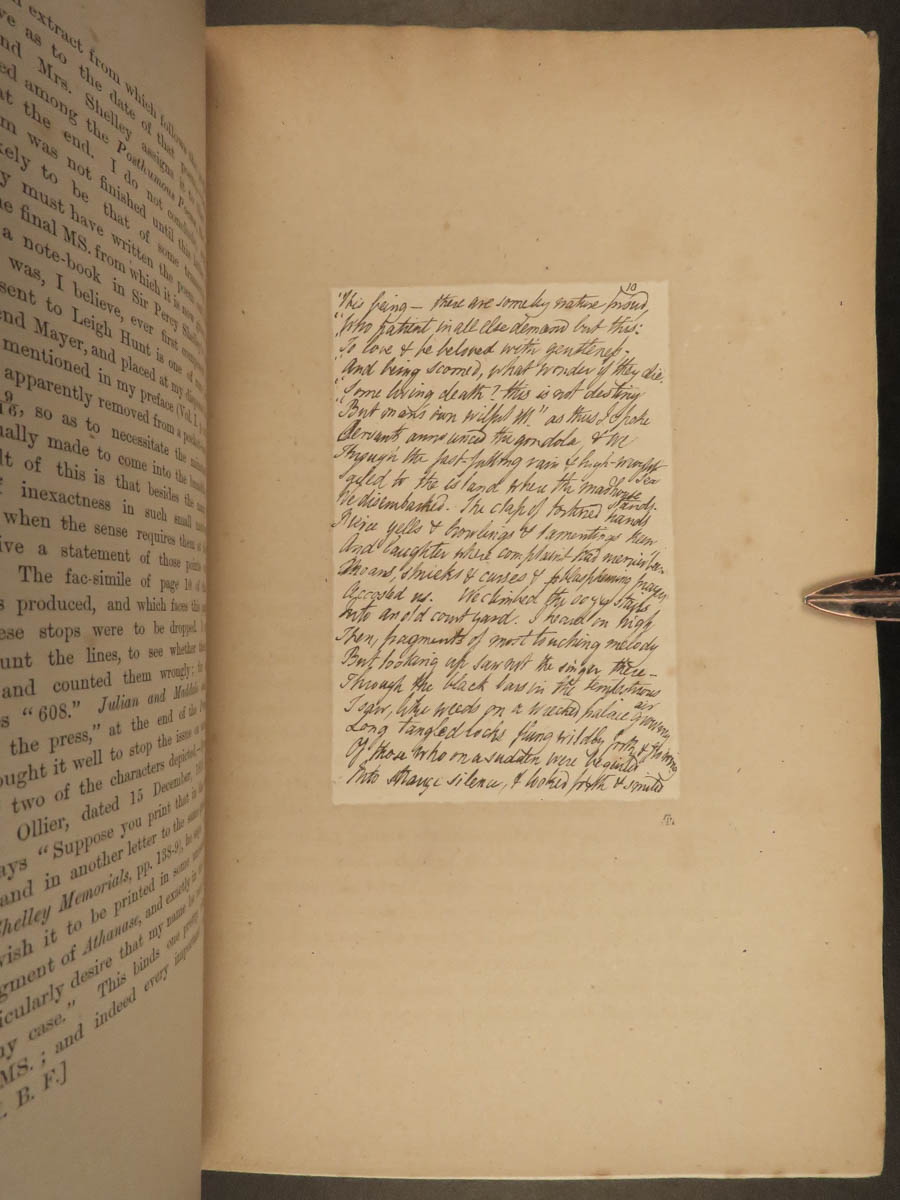 extract from which follows
ve as to the date of that
nd Mrs. Shelley assigns it to
ed among the Posthumous Poems
at the end. I do not
m was not finished until this
kely to be that of some
y must have written the poem
e final MS. from which it is now
a note-book in Sir Percy Shelley's
was, I believe, ever first
sent to Leigh Hunt is one of
end Mayer, and placed at my
mentioned in my preface (Vol. I
apparently removed from a
9
16, so as to necessitate the
ually made to come into the
lt of this is that besides the
f inexactness in such small
when the sense requires them
ive a statement of those points
The fac-simile of page 10 of
s produced, and which faces this
ese stops were to be dropped.
unt the lines, to see whether
and counted them wrongly;
s "608." Julian and Maddalo
the press," at the end of the
ought it well to stop the issue
two of the characters depicted
Ollier, dated 15 December,
ays "Suppose you print that
and in another letter to the same
Shelley Memorials, pp. 138-9), he
wish it to be printed in some
gment of Athanase, and exactly
icularly desire that my name
ny case." This binds one
MS.; and indeed every
B. F.]
10
"This being — there are some by nature proud,
"Who patient in all else demand but this:
"To love & be beloved with gentleness.
"And being scorned, what wonder if they die
"Some living death? this is not destiny
"But man's own wilful ill." as thus I spoke
Servants announced the gondola, & we
Through the fast-falling rain & high-wrought sea
Sailed to the island where the madhouse stands.
We disembarked. The clap of tortured hands
Fierce yells & howlings & lamentings keen
And laughter where complaint had merrier been
Moans, shrieks & curses & blaspheming prayers
Accosted us. We climbed the oozy stairs
Into an old court yard. I heard on high
Then, fragments of most touching melody
But looking up saw not the singer there —
Through the black bars in the tempestuous air
I saw, like weeds on a wrecked palace growing
Long tangled locks flung wildly forth & flowing
Of those who on a sudden were beguiled
Into strange silence, & looked forth & smiled